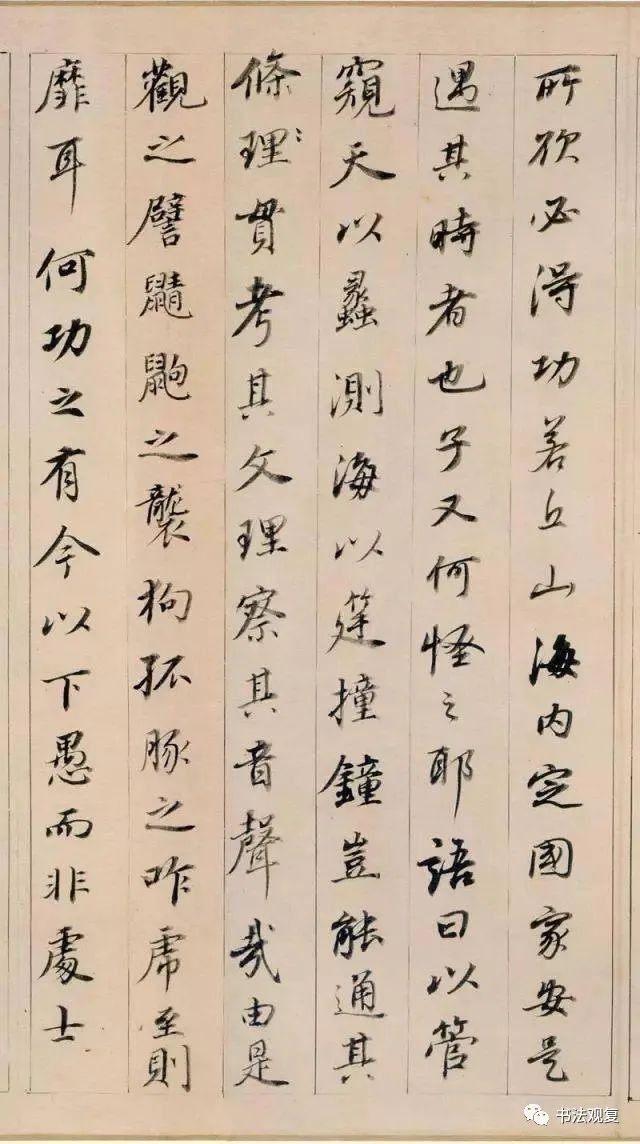 所欲必得功若丘山海内定國家安是
遇其時者也子又何怪之耶語曰以管
窺天以蠡測海以筳撞鐘豈能通其
條理〻貫考其文理察其音聲哉由是
觀之譬鼱鼩之襲狗孤豚之咋虎至則
靡耳何功之有今以下愚而非處士
书法观复